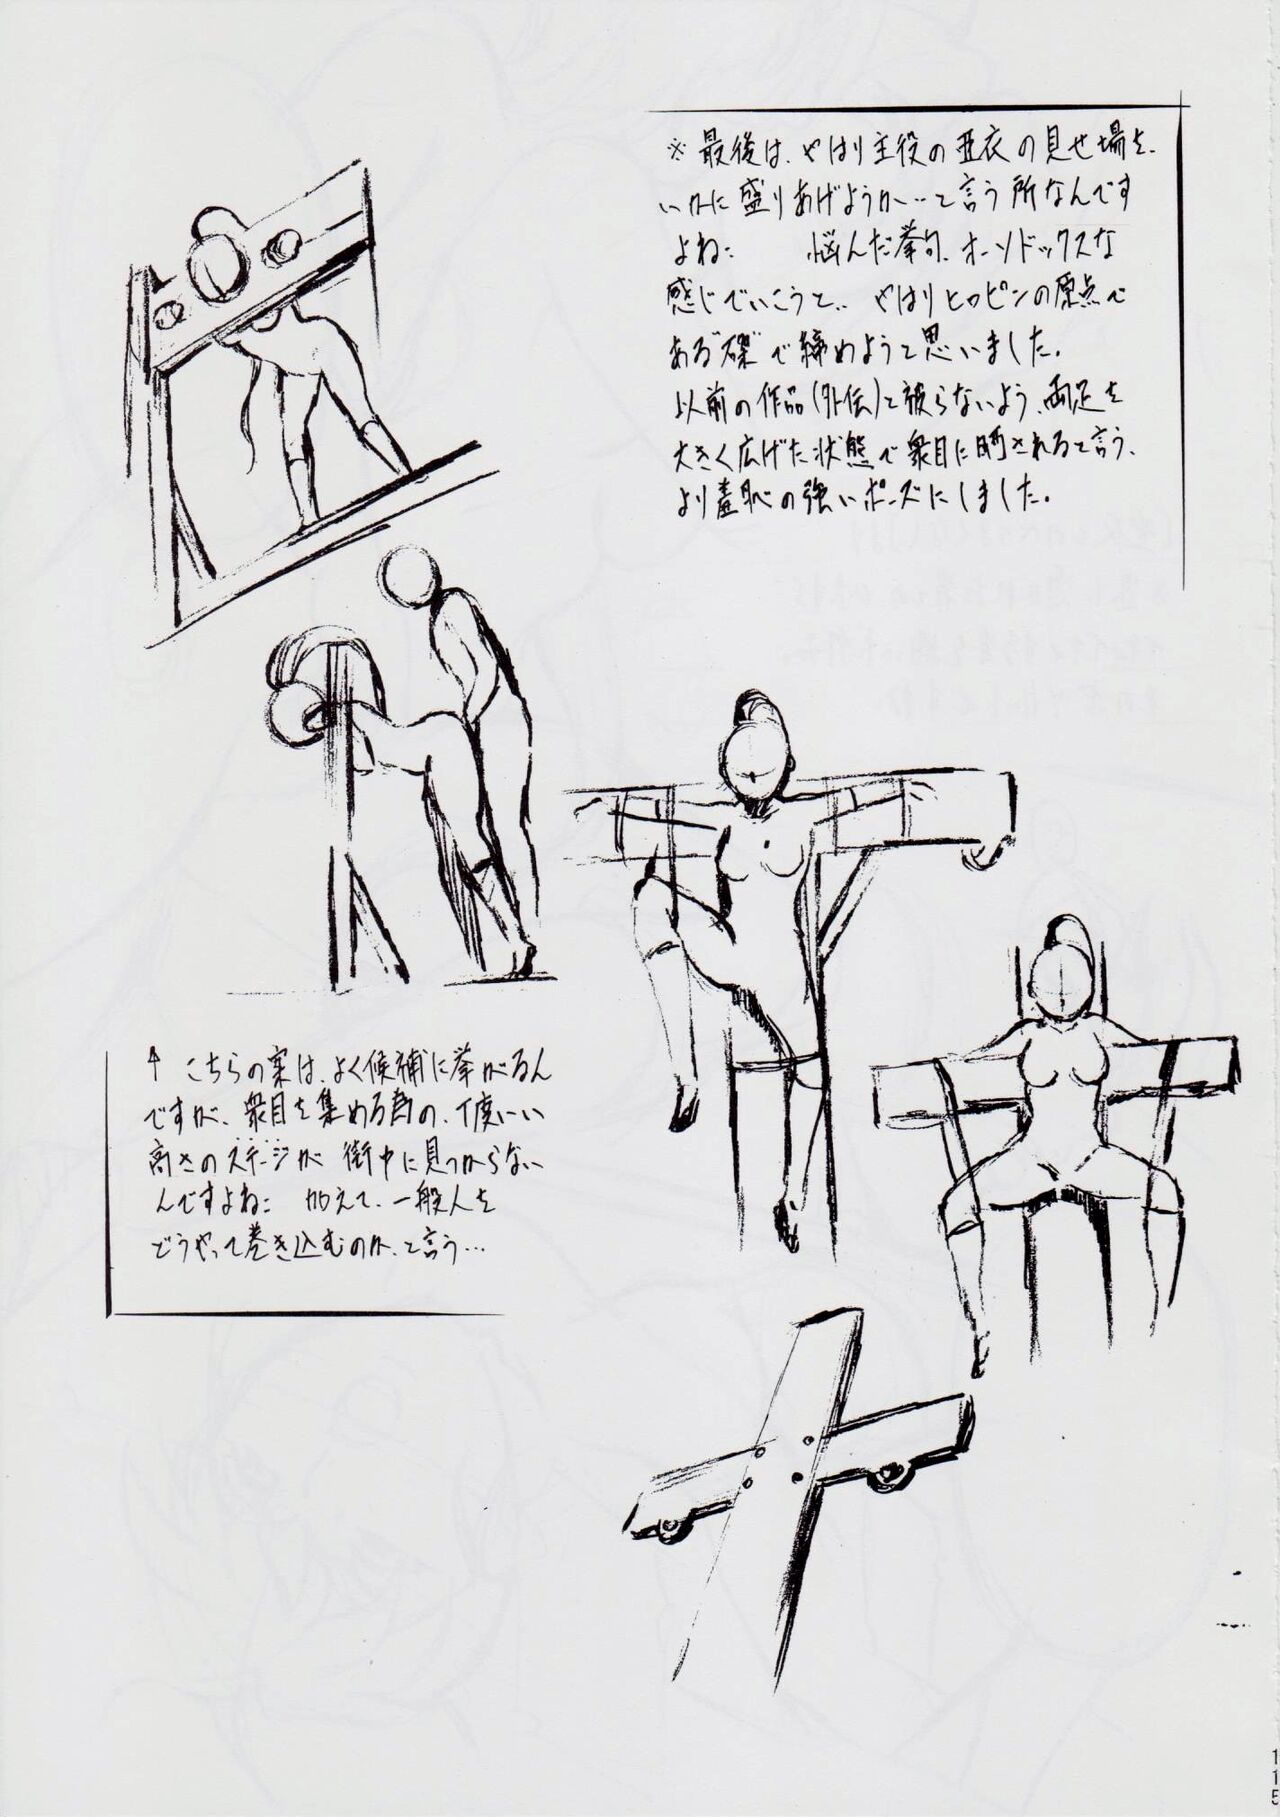 ※最後は、やはり主役の亜衣の見せ場を、
いかに盛りあげようか…と言う所なんです
よね: 悩んだ挙句、オーソドックスな
感じでいこうと.. やはりヒロピンの原点で
ある"磔"で締めようと思いました。
以前の作品(外伝)と被らないよう、両足を
大きく広げた状態で衆目に晒されると言う、
より羞恥の強いポーズにしました。
↑ こちらの案は、よく候補に挙がるん
ですが、衆目を集める為の、丁度いい
高さのステージが街中に見つからない
んですよね: 加えて、一般人を
どうやって巻き込むのか、と言う…
115